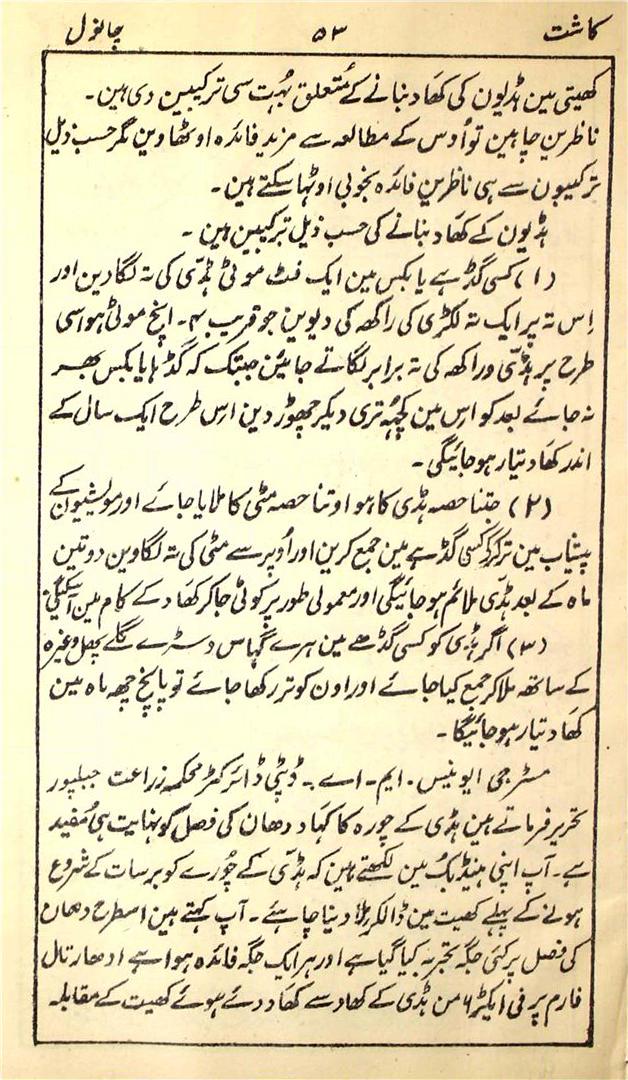 کاشت ۵۳ چانول
کھیتی مین ہڈیون کی کھاد بنانے کے متعلق بہُت سی ترکیبین دی ہین۔
ناظرین چاہین تو اُوس کے مطالعہ سے مزید فائدہ اوٹھاوین مگر حسب ذیل
ترکیبون سے ہی ناظرین فائدہ بخوبی اوٹہا سکتے ہین۔
ہڈیون کے کھاد بنانے کی حسب ذیل ترکیبین ہین۔
(۱) کسی گڈہے یا بکس مین ایک فٹ موٹی ہڈی کی تہ لگا دین اور
اِس تہ پر ایک تہ لکڑی کی راکھ کی دیوین جو قریب ۴۔ اینچ موٹی ہو اسی
طرح پر ہڈّی و راکھ کی تہ برابر لگاتے جائین جبتک کہ گڈہا یا بکس بھر
نہ جائے بعد کو اس مین کچھہ تری دیکر چھوڑ دین اس طرح ایک سال کے
اندر کھاد تیار ہو جائیگی۔
(۲) جتنا حصہ ہڈی کا ہو اوتنا حصہ مٹی کا ملایا جائے اور مویشیون کے
پیشاب مین تر کرکے کسی گڈہے مین جمع کرین اور اُوپر سے مٹی کی تہ لگاوین دو تین
ماہ کے بعد ہڈّی ملائم ہو جائیگی اور معمولی طور پر کوٹی جا کر کھاد کے کام مین آسکیگی
(۳) اگر ہڈی کو کسی گڈھے مین ہرے گہاس و سڑے گلے پھل وغیرہ
کے ساتھ ملا کر جمع کیا جائے اور اون کو تر رکھا جائے تو پانچ چھہ ماہ مین
کھاد تیار ہو جائیگا۔
مسٹر جی ایونیس۔ ایم۔ اے۔ ڈپٹی ڈائرکٹر محکمہ زراعت جبلپور
تحریر فرماتے ہین ہڈی کے چورہ کا کہاد دھان کی فصل کو نہایت ہی مُفید
ہے۔ آپ اپنی ہینڈ بُک مین لکھتے ہین کہ ہڈّی کے چُورے کو برسات کے شروع
ہونے کے پہلے کھیت مین ڈالکر ملا دینا چاہئے۔ آپ کہتے ہین اسطرح دھان
کی فصل پر کئی جگہ تجربہ کیا گیا ہے اور ہر ایک جگہ فائدہ ہوا ہے ادھارتال
فارم پر فی ایکڑ ۶ من ہڈی کے کھاد سے کھاد دئے ہوئے کھیت کے مقابلہ